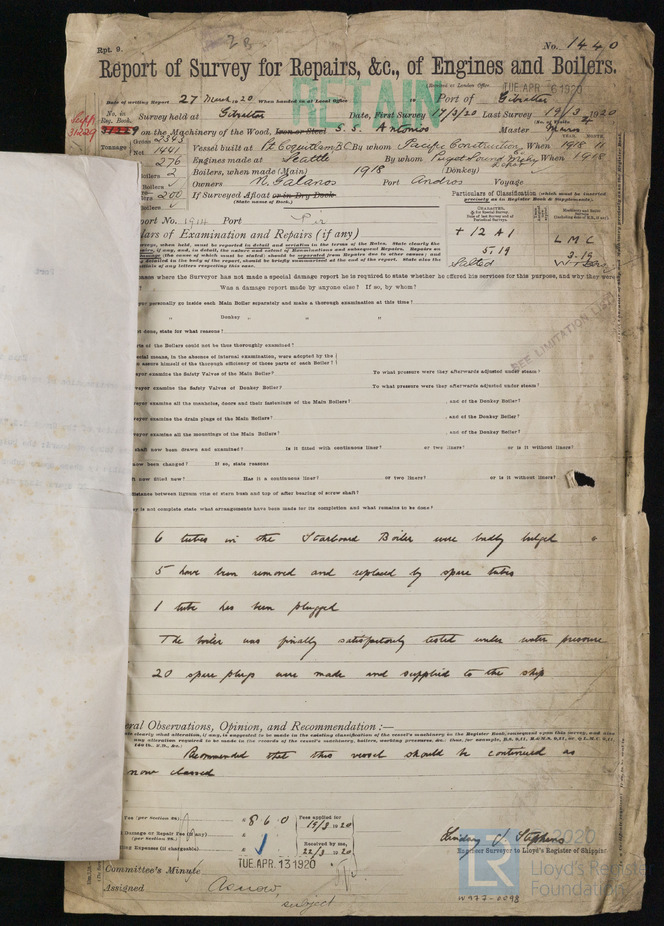 Rpt. 9.
No. 1440
Report of Survey for Repairs, &c., of Engines and Boilers.
RETAIN
TUE. APR. 6 1920
Date of writing Report 27 March 1920 When handed in at Local Office Port of Gibraltar
No. in Reg. Book. Survey held at Gibraltar Date, First Survey 17/3/20 Last Survey 19/3 1920
Supp 31229 on the Machinery of the Wood, Iron or Steel S.S. Antonios Master
Tonnage Gross 2343 Vessel built at Pt. Coquitlam B.C. By whom Pacific Construction Co When 1918
Net 1441
276 Engines made at Seattle By whom Puget Sound When 1918
Boilers 2 Boilers, when made (Main) 1918 (Donkey)
Owners N. Galanos Port Andros Voyage
200 If Surveyed Afloat or in Dry Dock
(State name of Dock.)
Particulars of Classification (which must be inserted precisely as in Register Book & Supplements).
port No. Port
lars of Examination and Repairs (if any)
+ 12 A 1
5.19
Salted
L M C
3.19
SEE LIMITATION LIST
reason where the Surveyor has not made a special damage report he is required to state whether he offered his services for this purpose, and why they were
? Was a damage report made by anyone else? If so, by whom?
yor personally go inside each Main Boiler separately and make a thorough examination at this time?
" Donkey " " "
t done, state for what reasons?
rts of the Boilers could not be thus thoroughly examined?
cial means, in the absence of internal examination, were adopted by the
assure himself of the thorough efficiency of those parts of each Boiler?
veyor examine the Safety Valves of the Main Boiler? To what pressure were they afterwards adjusted under steam?
veyor examine the Safety Valves of Donkey Boiler? To what pressure were they afterwards adjusted under steam?
veyor examine all the manholes, doors and their fastenings of the Main Boilers? , and of the Donkey Boiler?
veyor examine the drain plugs of the Main Boilers? , and of the Donkey Boiler?
veyor examine all the mountings of the Main Boilers? , and of the Donkey Boiler?
shaft now been drawn and examined? Is it fitted with continuous liner? or two liners? or is it without liners?
now been changed? If so, state reasons
t now fitted new? Has it a continuous liner? or two liners? or is it without liners?
distance between lignum vitæ of stern bush and top of after bearing of screw shaft?
y is not complete state what arrangements have been made for its completion and what remains to be done?
6 tubes in the Starboard Boiler were badly bulged
5 have been removed and replaced by spare tubes
1 tube has been plugged
The boiler was finally satisfactorily tested under water pressure
20 spare plugs were made and supplied to the ship
eral Observations, Opinion, and Recommendation:—
Recommended that this vessel should be continued as
now classed
Fee (per Section 28) £ 8 6 0 Fees applied for 19/3 1920
Damage or Repair Fee (if any) £
(per Section 28.)
ing Expenses (if chargeable) £ Received by me, 22/3 1920
Lindsay J. Stephens
Engineer Surveyor to Lloyd's Register of Shipping
TUE. APR. 13 1920
Committee's Minute
Assigned As now
subject
2020
LR
Lloyd's Register
Foundation
W977-0098